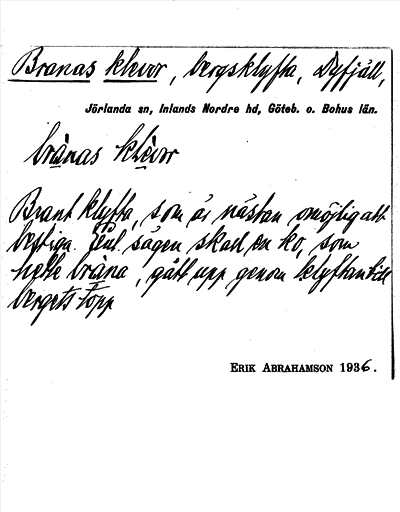 Branas klevor, bergsklyfta, Dyfjäll,
Jörlanda sn, Inlands Nordre hd, Göteb. o. Bohus län.
brànas klèvor
Brant klyfta, som är nästan omöjlig att
bestiga. Enl. sägen skad en ko, som
hette bràna, gått upp genom klyftan till
bergets topp
ERIK ABRAHAMSON 1936.